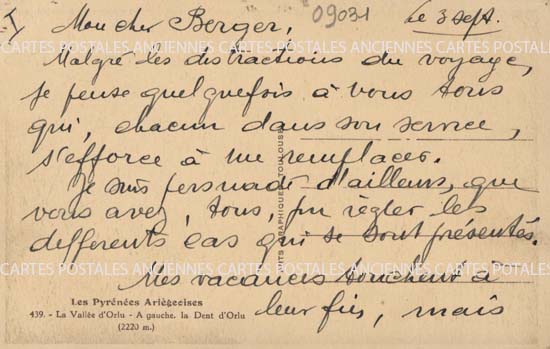 I Mon cher Berger, 09031 Le 3 sept.
CARTES POSTALES ANCIENNES CARTES POSTALES ANCIENNES CARTES POSTALES
Malgré les distractions du voyage,
je pense quelquefois à vous tous
qui, chacun dans son service,
s'efforce à me remplacer.
Je suis persuadé d'ailleurs, que
vous avez, tous, pu règler les
differents cas qui se sont présentés.
CARTES POSTALES ANCIENNES CARTES POSTALES ANCIENNES CARTES POSTALES
Mes vacances touchent à
leur fin, mais
Les Pyrénées Arièǵeoises
439. - La Vallée d'Orlu - A gauche, la Dent d'Orlu
(2220 m.)